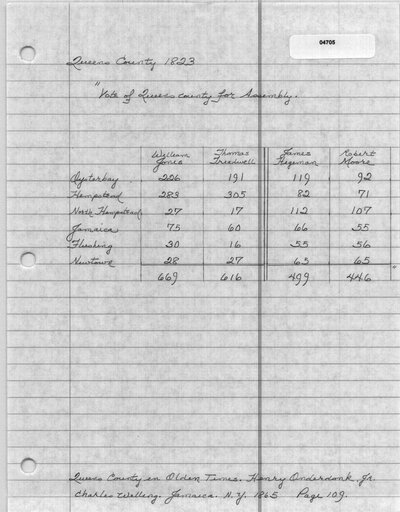 04705
Queens County 1823
"Vote of Queens county for Assembly.
William Jones Thomas Treadwell James Hegeman Robert Moore
Oysterbay 226 191 119 92
Hempstead 283 305 82 71
North Hempstead 27 17 112 107
Jamaica 75 60 66 55
Flushing 30 16 55 56
Newtown 28 27 65 65
669 616 499 446 "
Queens County in Olden Times. Henry Onderdonk, Jr.
Charles Welling. Jamaica. N.Y. 1865 Page 109.